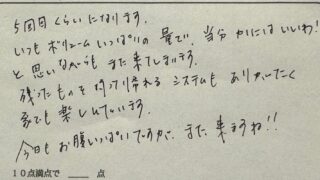 5回目くらいになります。
いつもボリュームいっぱいの量で、当分カニはいいわ!
と思いながらも また来てしまいます。
残ったものを持って帰れるシステムも ありがたく
家でも楽しんでいます。
今日もお腹いっぱいですが、また来ますね!!
10点満点で ____ 点